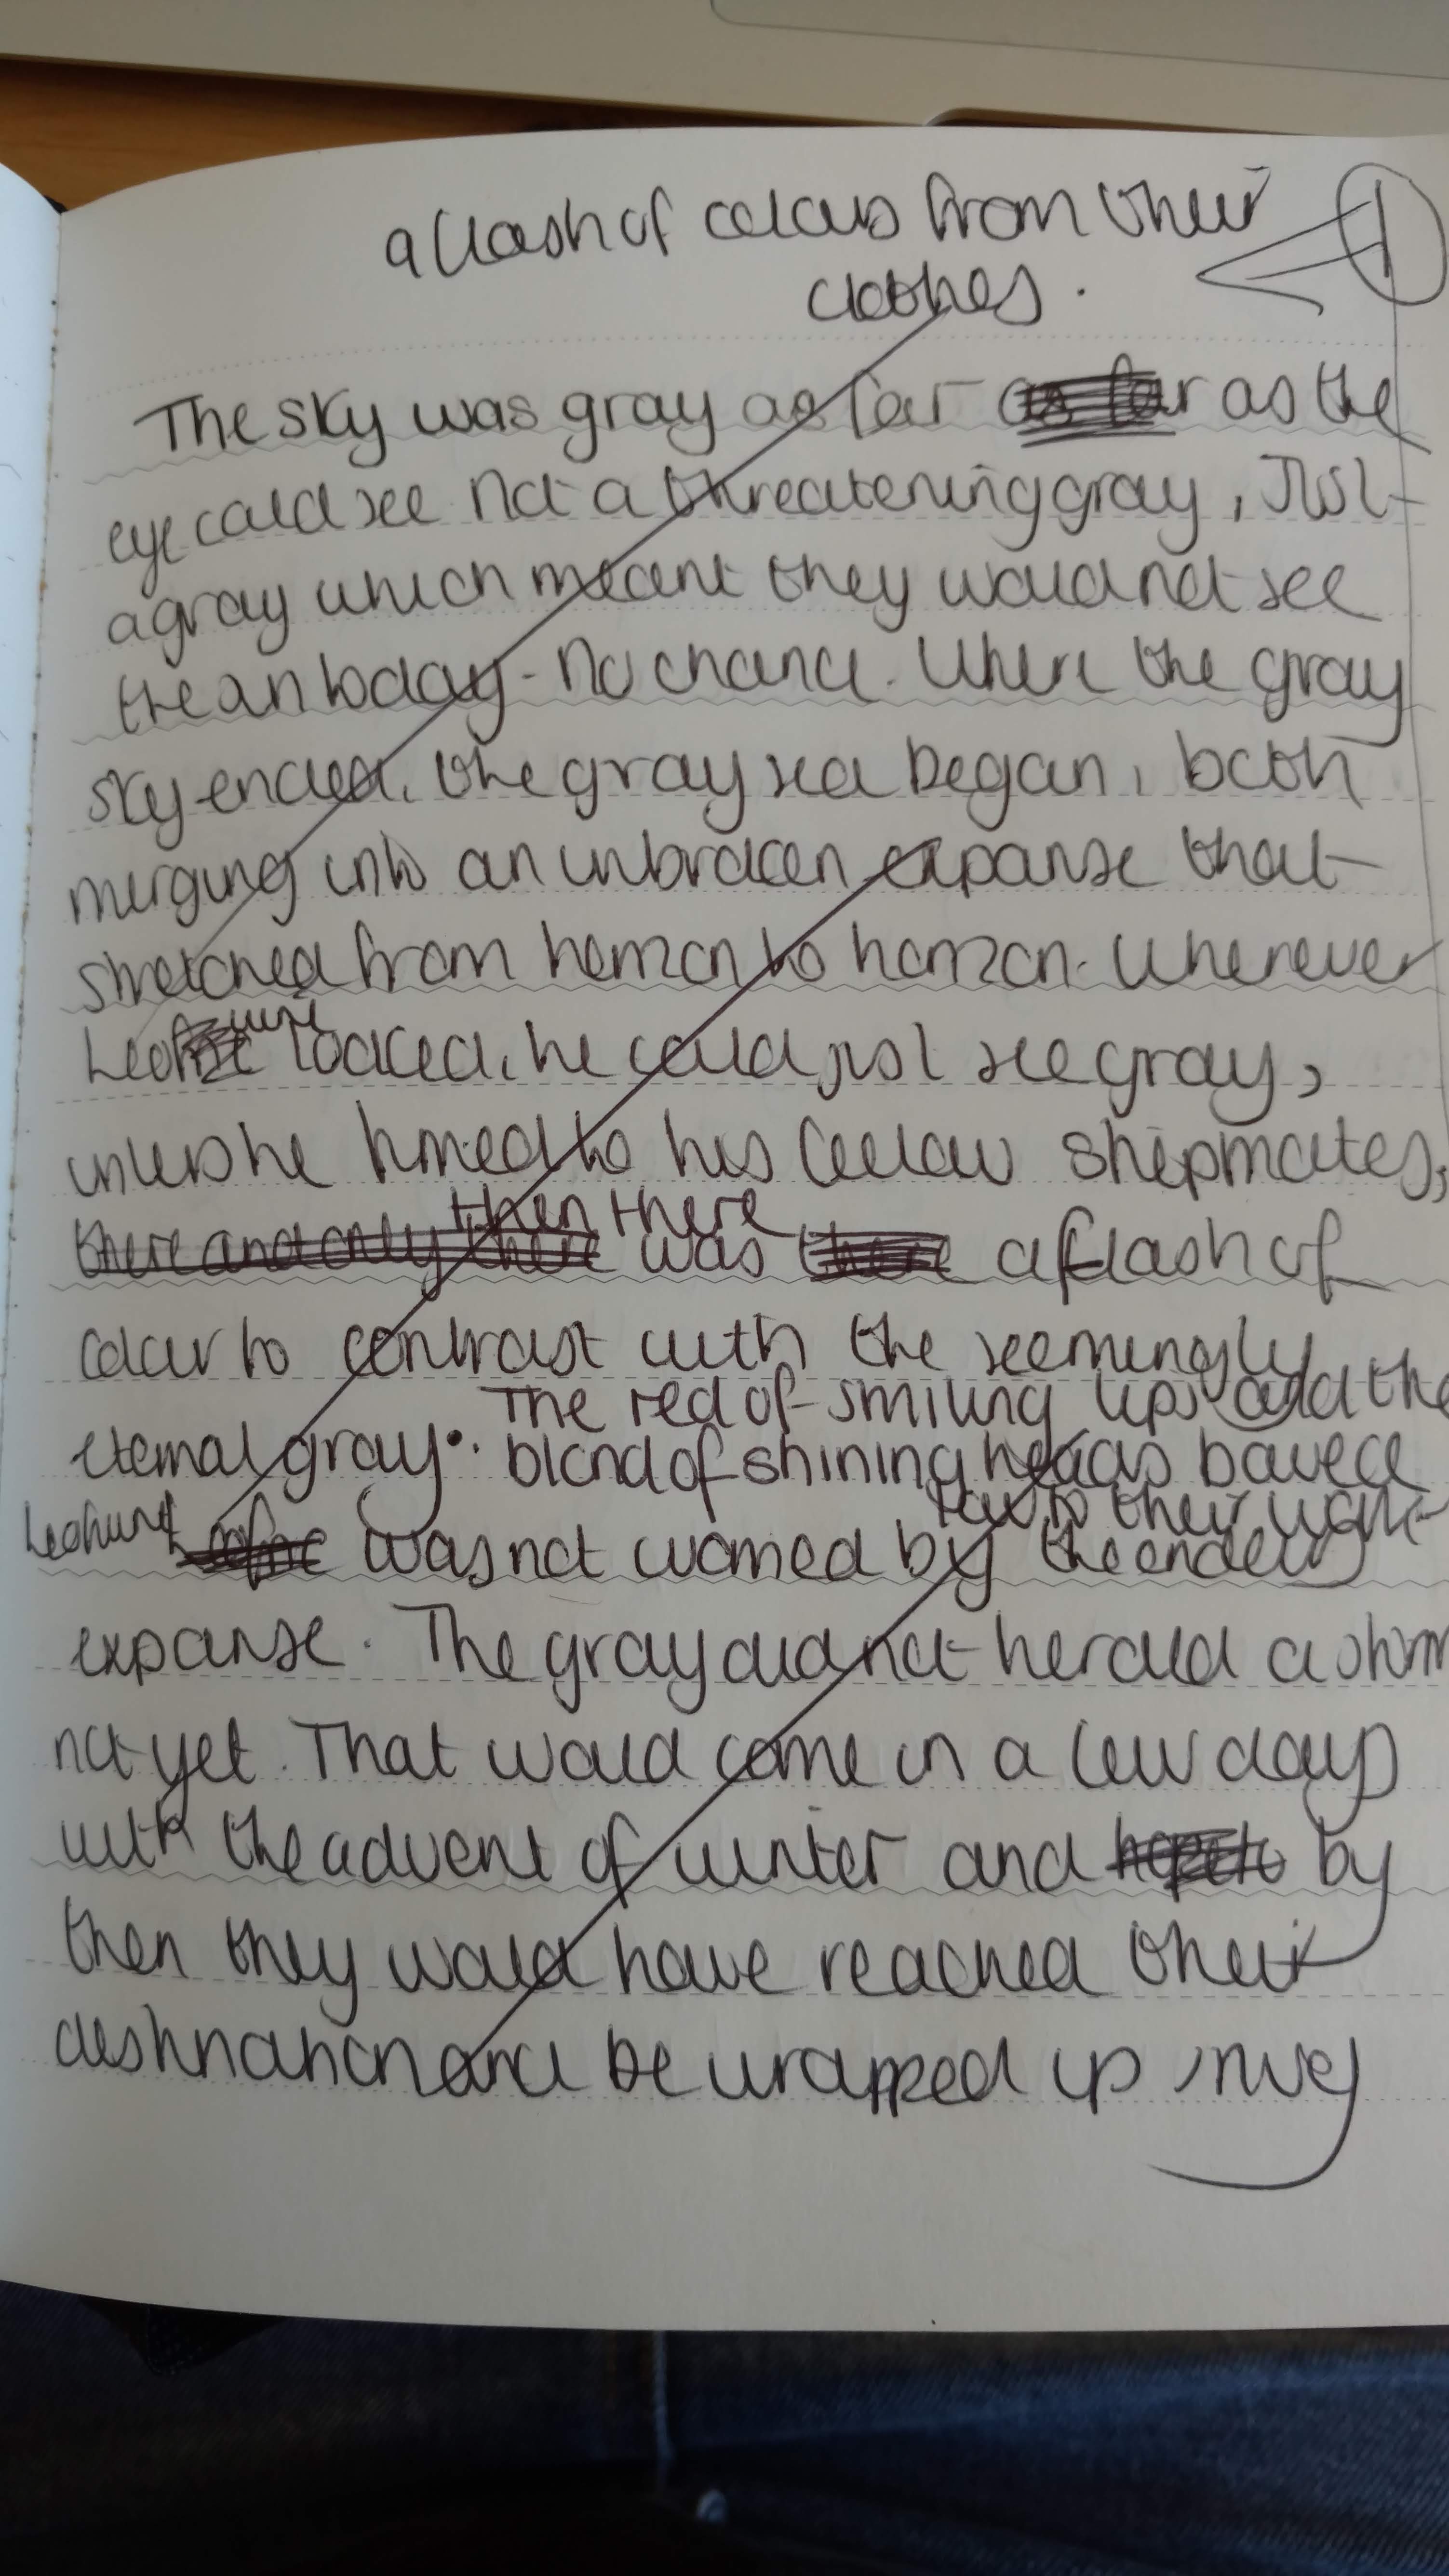 a flash of colours from their
clothes.
1
The sky was gray as far as far as the
eye could see not a threatening gray, just
a gray which meant they would not see
the an today - no chance. Where the gray
sky ended, the gray sea began, both
merging into an unbroken expanse that
stretched from horizon to horizon. Wherever
looked, he could just see gray,
unless he turned to his fellow shipmates,
then there
there and only there was there a flash of
colour to contrast with the seemingly
The red of smiling lips and the
eternal gray. blond of shining heads bowed
low to their work
was not worried by the endless
expanse. The gray did not herald a storm
not yet. That would come in a few days
with the advent of winter and by
then they would have reached their
destination and be wrapped up snug